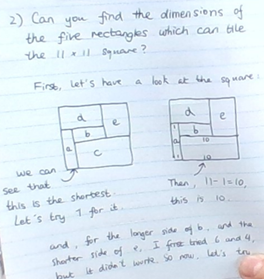 2) Can you find the dimensions of
the five rectangles which can tile
the 11 x 11 square?
First, let's have a look at the square:
d
e
b
a
c
d
e
b
a
10
10
we can
see that
this is the shortest.
Let's try 1 for it.
Then, 11-1=10,
this is 10.
and, for the longer side of b, and the
shorter side of I first tried 6 and 4,
but it didn't work. So now, let's try